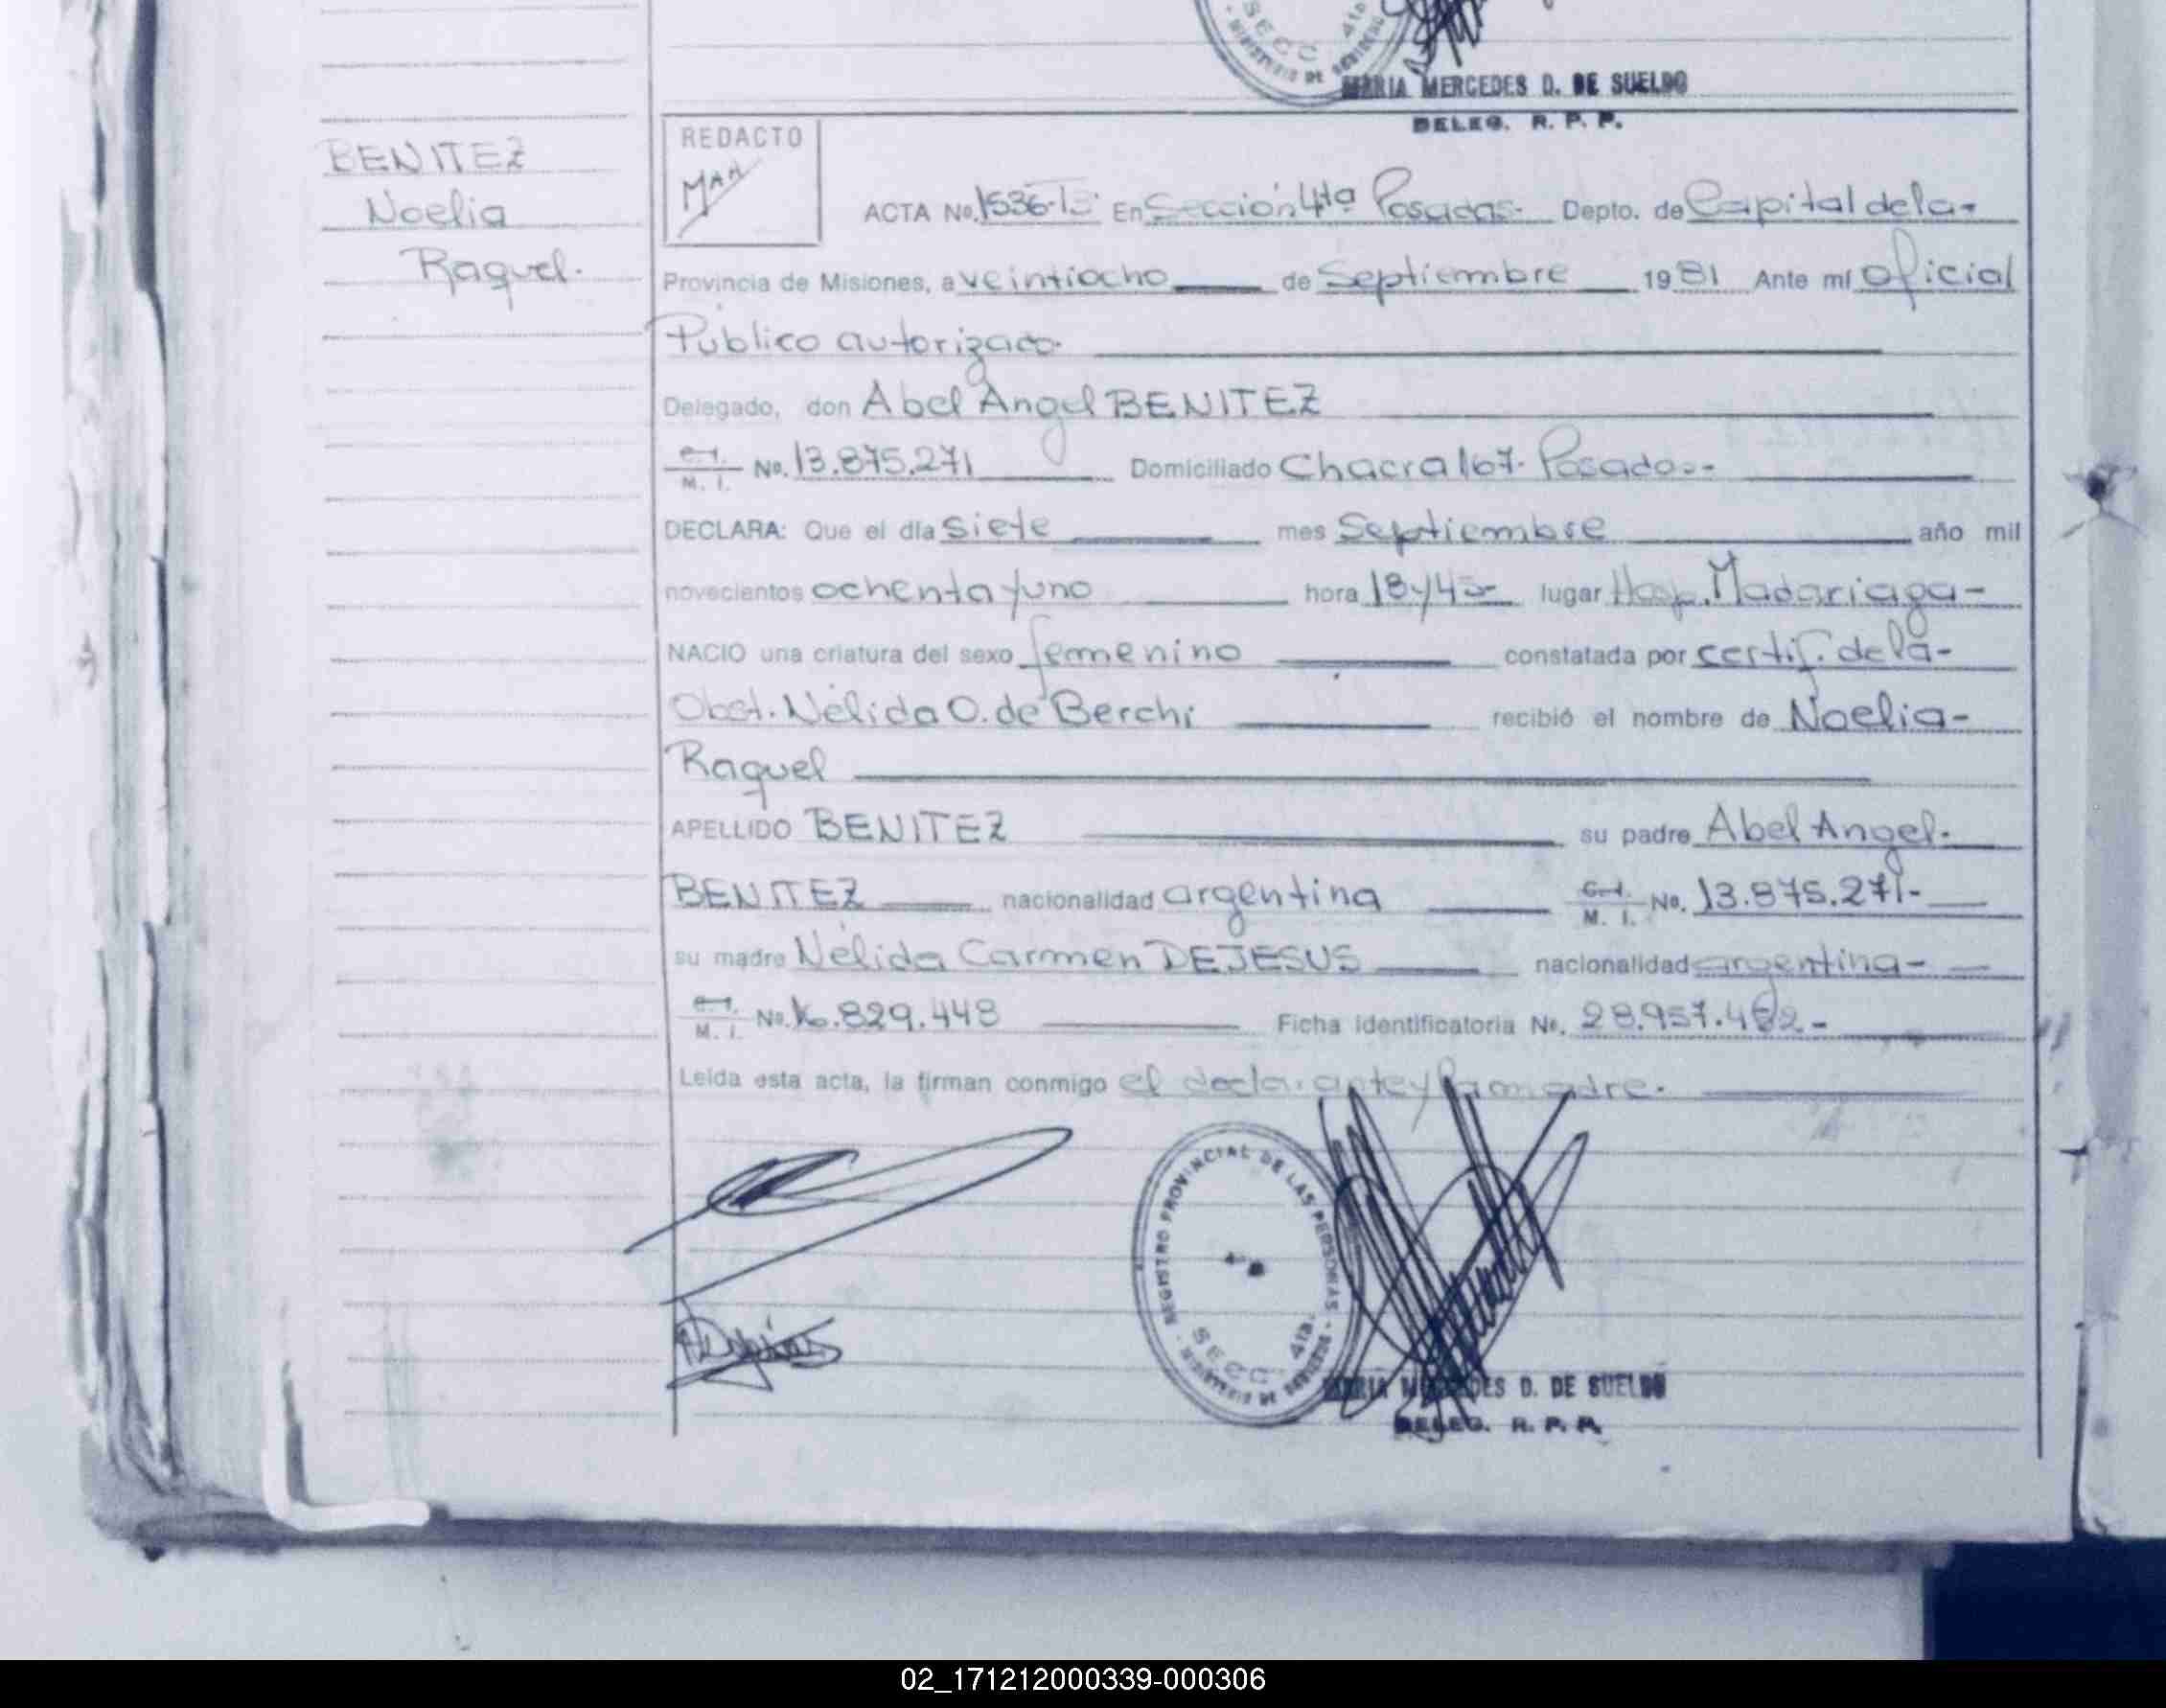 SECC 4ta
MINISTERIO DE GOBIERNO
MARIA MERCEDES D. DE SUELDO
DELEG. R. P. P.
BENITEZ
Noelia
Raquel.
REDACTO
ACTA No. 1536-T3 En Sección 4ta Posadas- Depto. de Capital de la-
Provincia de Misiones, a veintiocho de Septiembre 1981 Ante mí Oficial
Público autorizado.
Delegado, don Abel Angel BENITEZ
M. I. No. 13.875.271 Domiciliado Chacra 167- Posadas.-
DECLARA: Que el día siete mes Septiembre año mil
novecientos ochenta y uno hora 18y45- lugar Hosp. Madariaga-
NACIO una criatura del sexo femenino constatada por certif. de la-
Obst. Nélida O. de Berchi recibió el nombre de Noelia-
Raquel
APELLIDO BENITEZ su padre Abel Angel-
BENITEZ nacionalidad argentina C.I. M. I. No. 13.875.271-
su madre Nélida Carmen DEJESUS nacionalidad argentina-
M. I. No. 16.829.448 Ficha identificatoria No. 28.957.482-
Leída esta acta, la firman conmigo el declarante y la madre.
REGISTRO PROVINCIAL DE LAS PERSONAS
SECC. 4ta.
MINISTERIO DE GOBIERNO
MARIA MERCEDES D. DE SUELDO
DELEG. R. P. P.
02_171212000339-000306